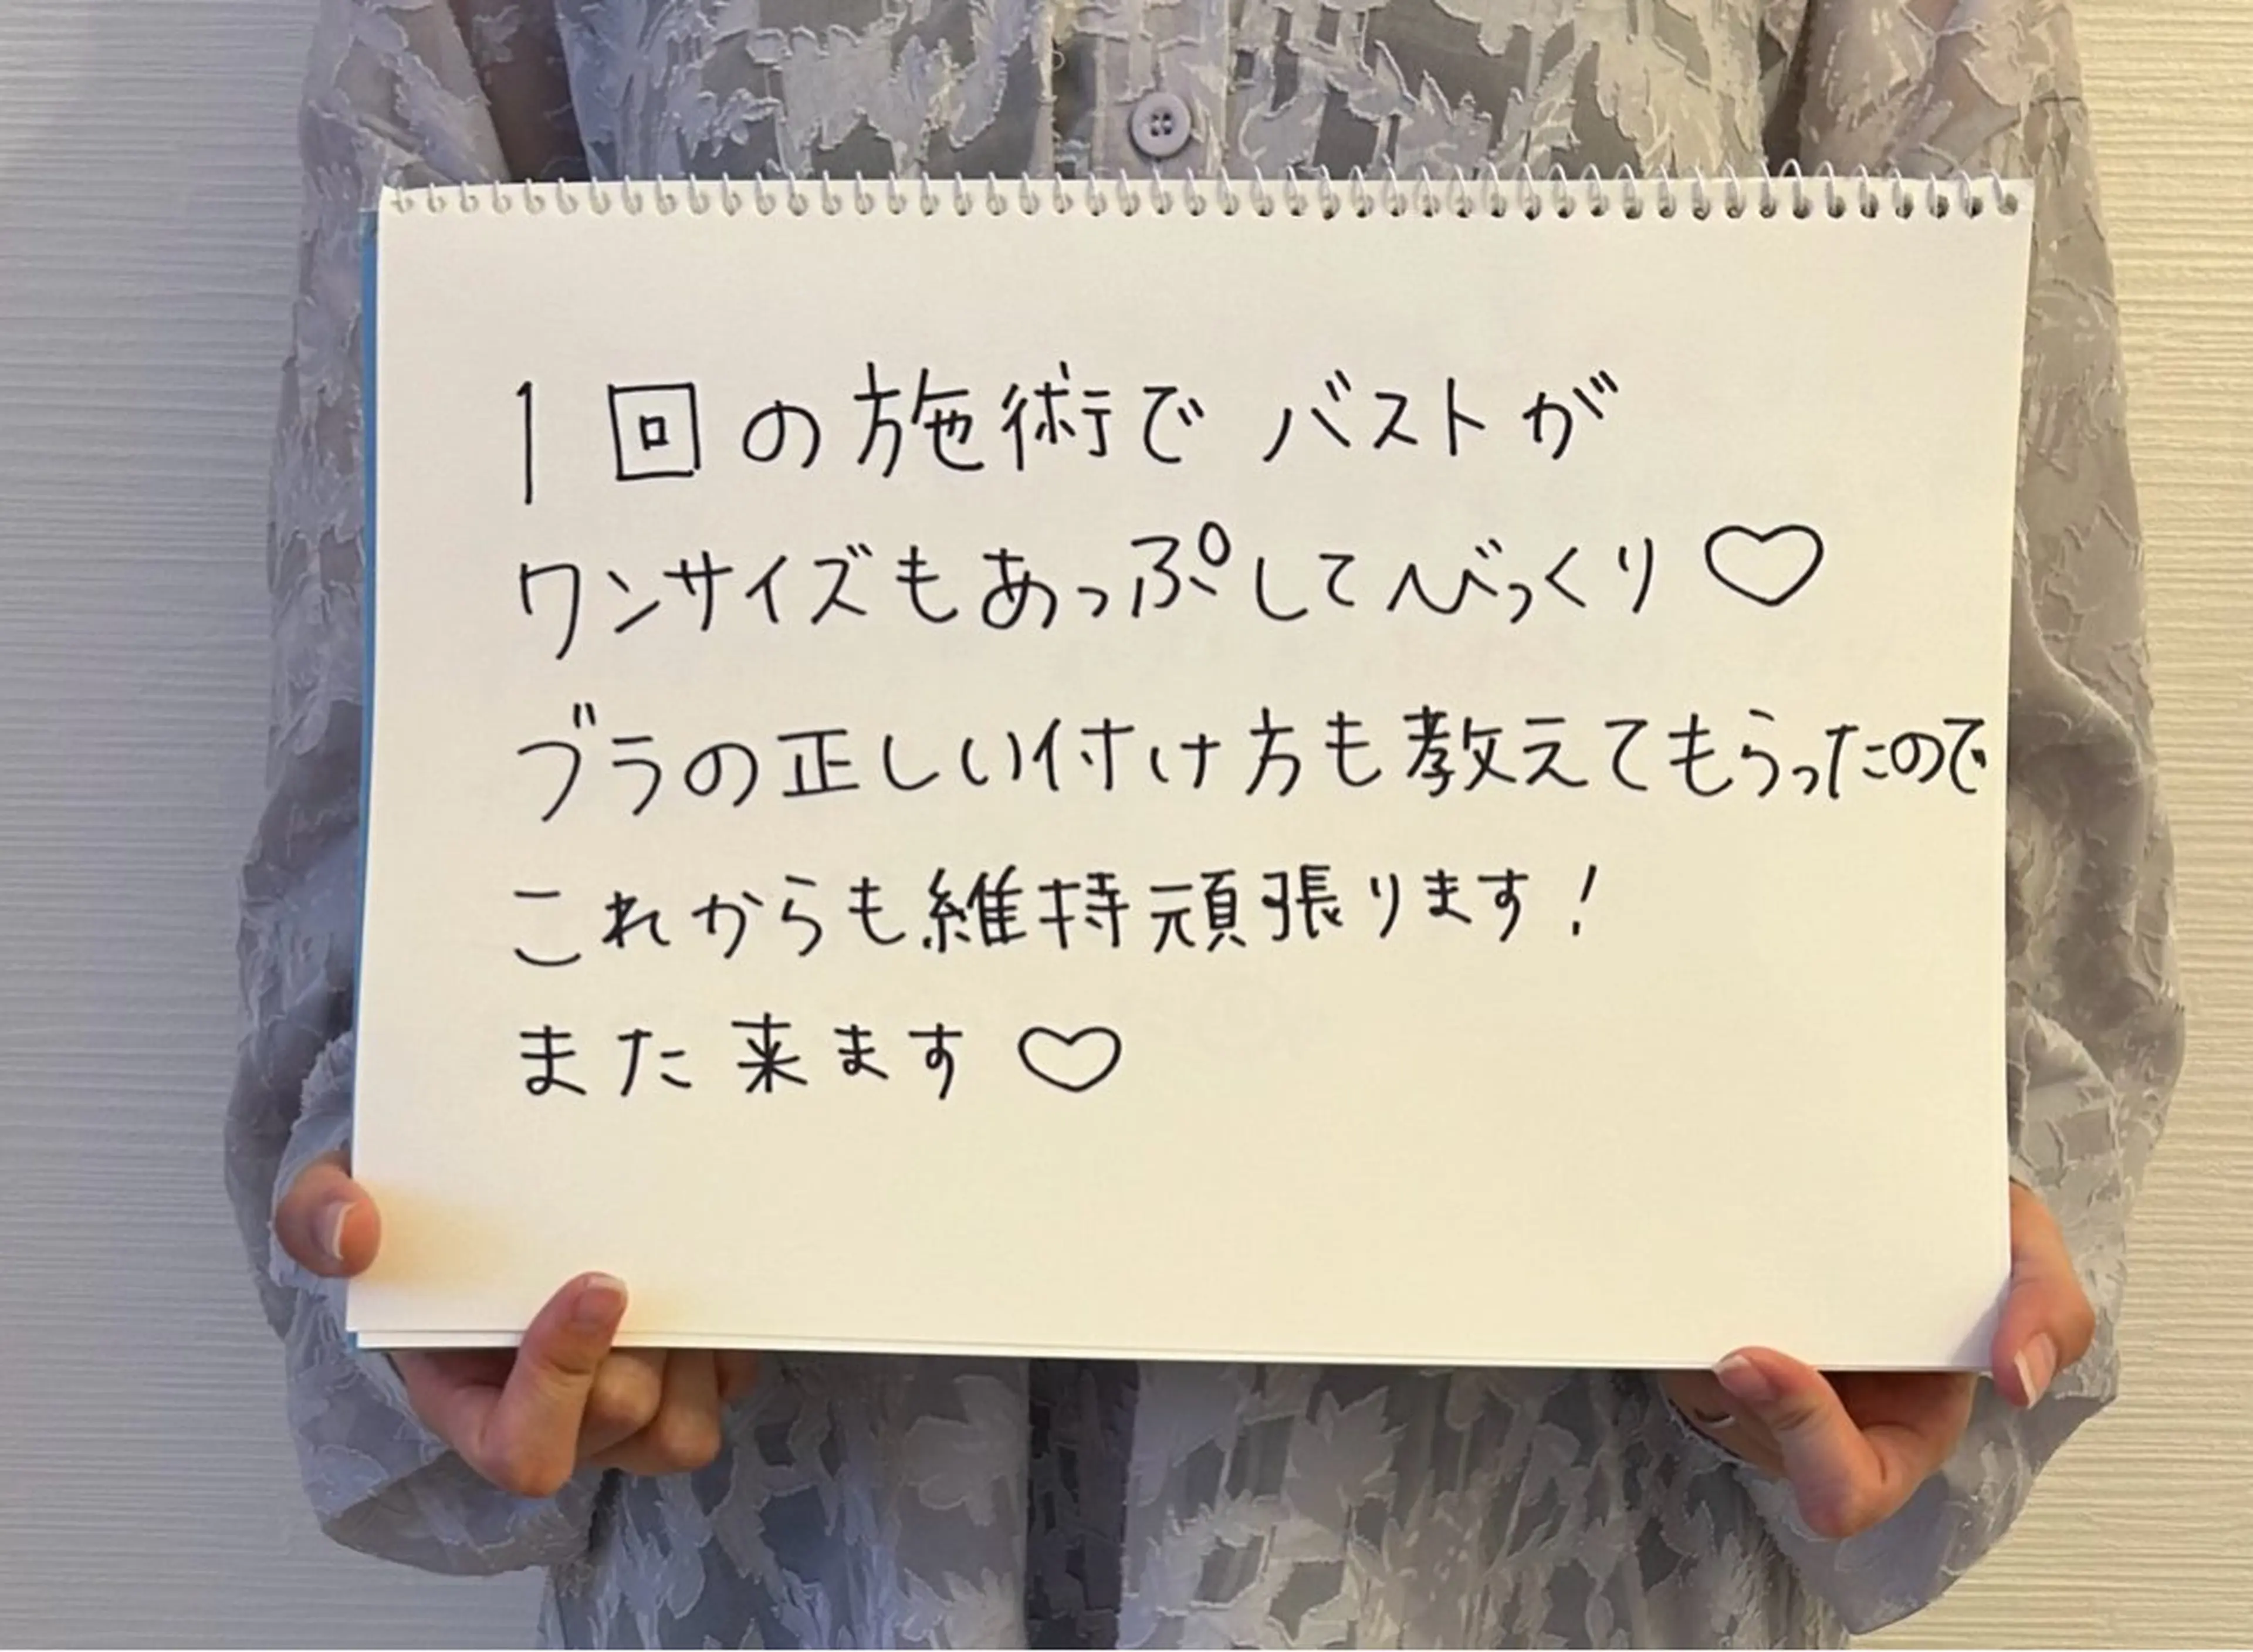 1回の施術でバストが
ワンサイズもあっぷしてびっくり♡
ブラの正しい付け方も教えてもらったので
これからも維持頑張ります!
また来ます♡